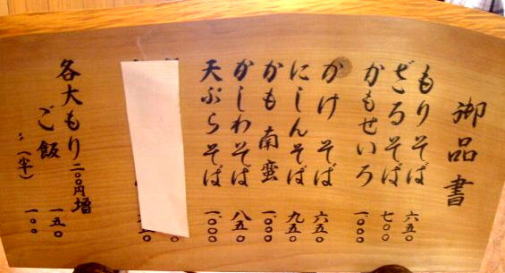 御品書
もりそば 六五〇
ざるそば 七〇〇
かもせいろ 一、〇〇〇
かけそば 六五〇
にしんそば 九五〇
かも南蛮 一、〇〇〇
かしわそば 八五〇
天ぷらそば 一、〇〇〇
各大もり 二〇〇円増
ご飯 一五〇
〃(半) 一〇〇